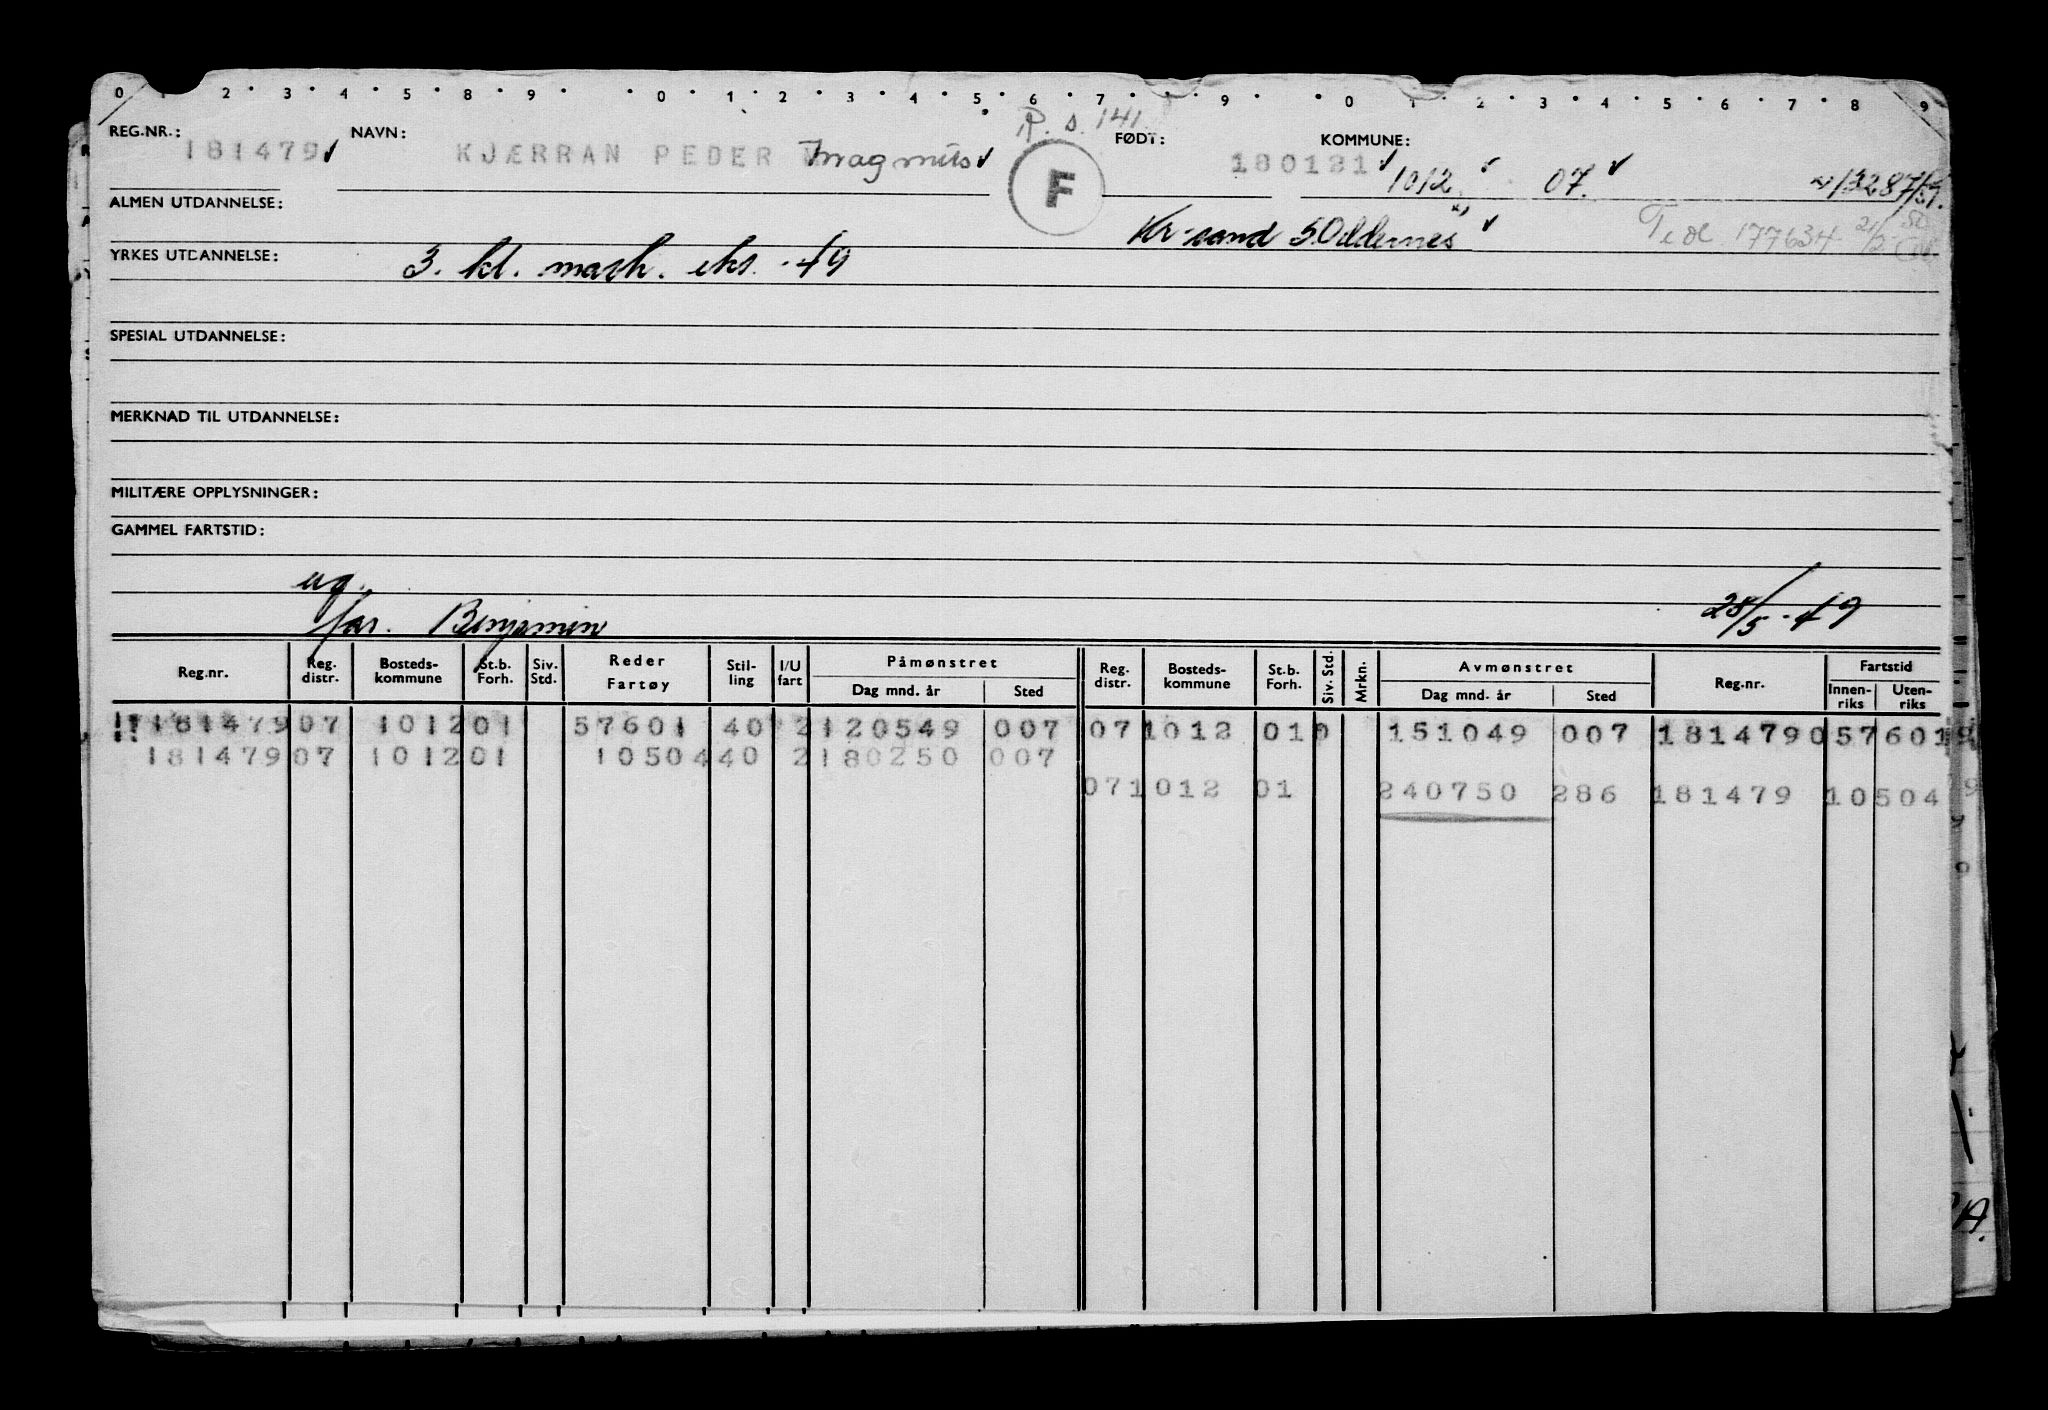 0 1 2 3 4 5 8 9 0 1 2 3 4 5 6 7 9 0 1 2 3 4 5 6 7 8 9
R. s. 141
REG.NR.: NAVN: FØDT: KOMMUNE:
181479 KJÆRRAN PEDER Magnus 180121 1012 07. x) 13287/51.
F
ALMEN UTDANNELSE: Kr-sand S. Oddernes x) 177634
YRKES UTDANNELSE: 3. kl. mask. eks. -49
SPESIAL UTDANNELSE:
MERKNAD TIL UTDANNELSE:
MILITÆRE OPPLYSNINGER:
GAMMEL FARTSTID:
ug.
far. Benjamin 28/5 - 49
Reg.nr. Reg. distr. Bosteds- kommune St.b. Forh. Siv. Std. Reder Fartøy Stil- ling I/U fart Påmønstret Dag mnd. år Sted Reg. distr. Bosteds- kommune St.b. Forh. Siv. Std. Mrkn. Avmønstret Dag mnd. år Sted Reg.nr. Fartstid Innen- riks Uten- riks
!! 181479 07 1012 01 57601 40 2 120549 007 07 1012 01 0 151049 007 181479 0 57601
181479 07 1012 01 10504 40 2 180250 007
07 1012 01 240750 286 181479 10504